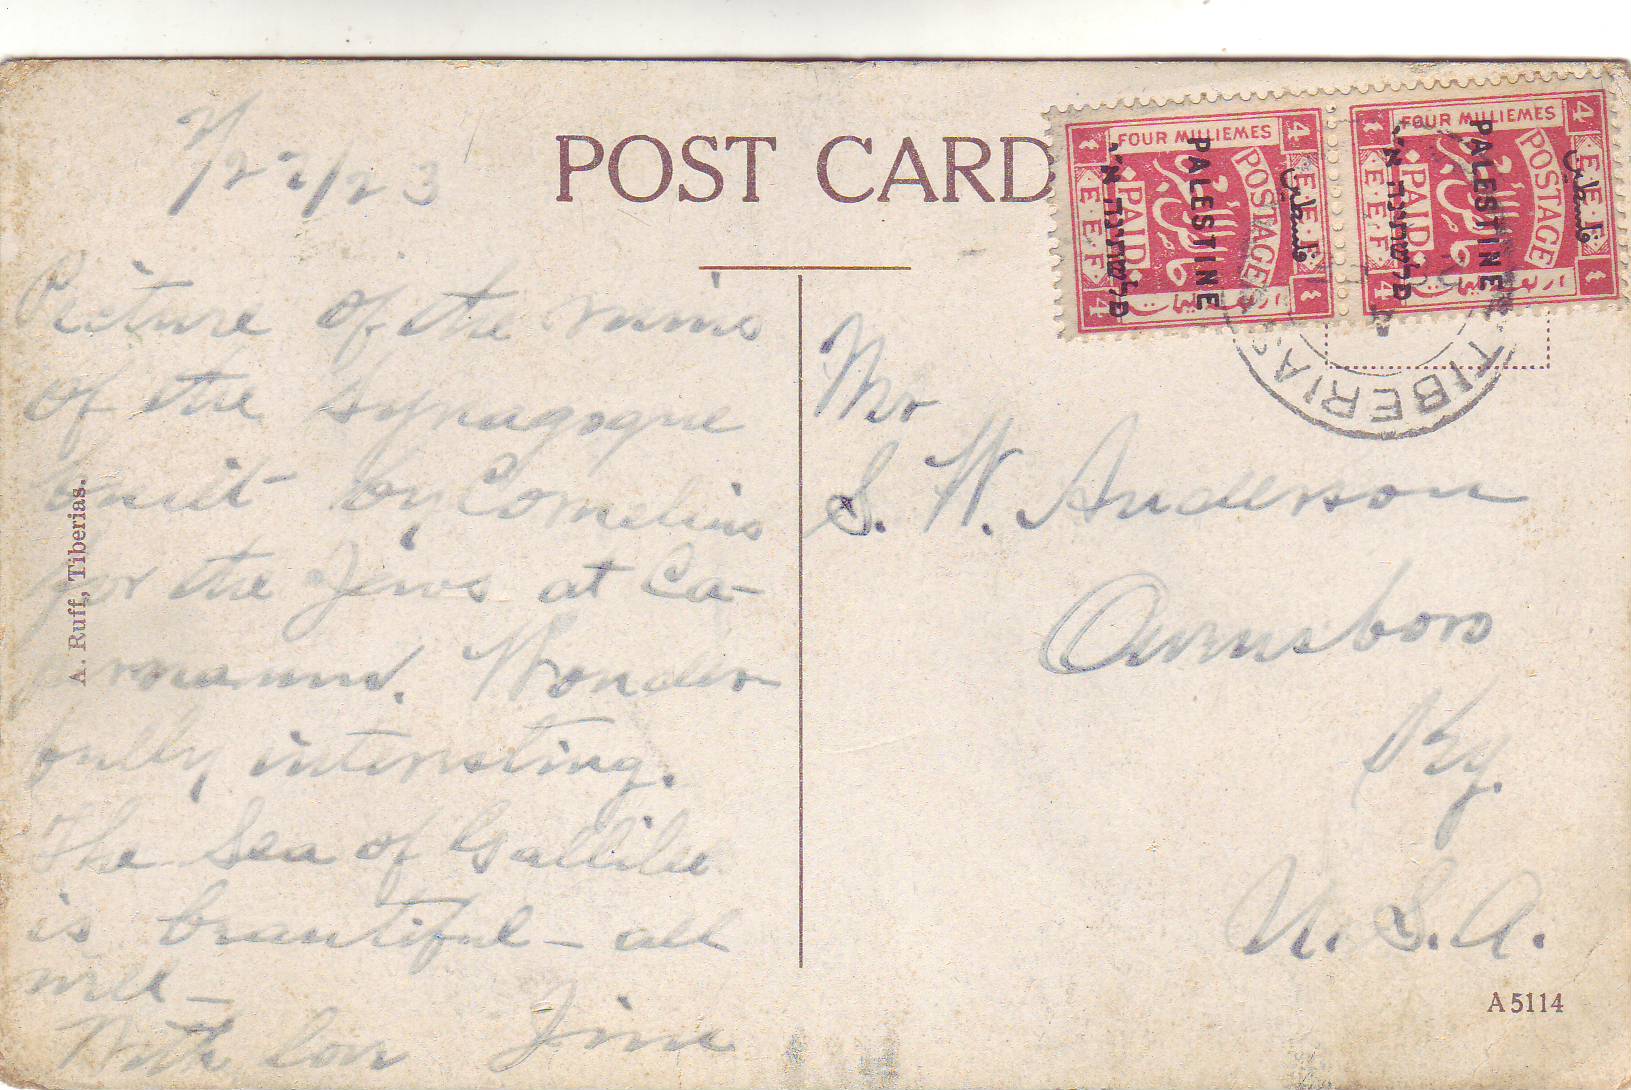 POST CARD
2/22/23
Picture of the ruins
of the synagogue
built by Cornelius
for the Jews at Ca-
Wonder
fully interesting.
The Sea of Gallilee
is beautiful – all
well –
With love Jim
A. Ruff, Tiberias.
FOUR MILLIEMES
4 E.E.F. 4
POSTAGE
PAID
PALESTINE
فلسطين
FOUR MILLIEMES
4 E.E.F. 4
POSTAGE
PAID
PALESTINE
فلسطين
TIBERIAS
Mr
S. W. Anderson
Owensboro
Ky.
U.S.A.
A 5114